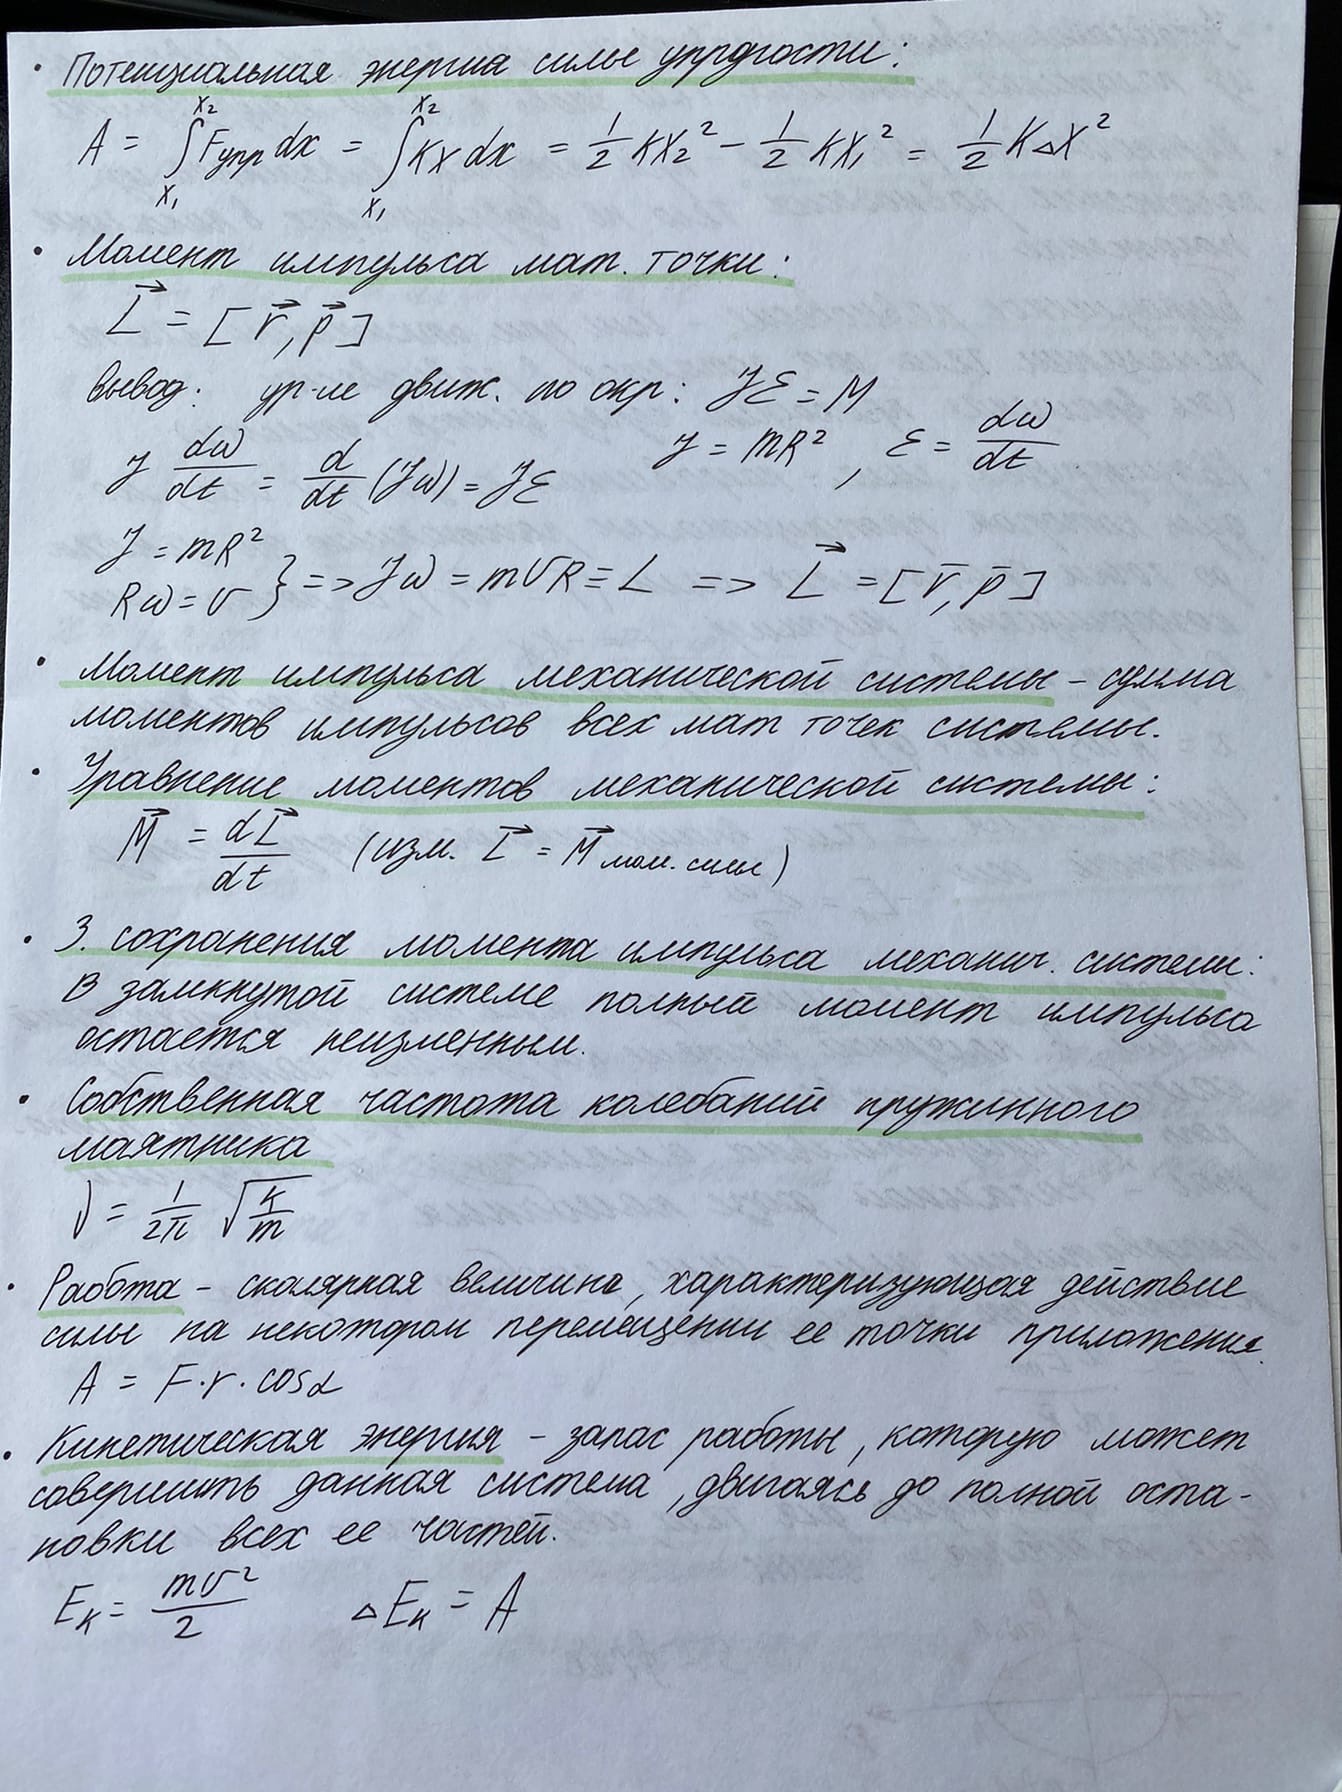 · Потенциальная энергия силы упргости:
A = ∫_{x₁}^{x₂} Fупр dx = ∫_{x₁}^{x₂} Kx dx = 1/2 KX₂² − 1/2 KX₁² = 1/2 K△X²
· Момент импульса мат. точки:
L⃗ = [r⃗, p⃗]
вывод: ур-ие движ. по окр: Jℰ = M
J dω/dt = d/dt (Jω) = Jℰ J = mR², ℰ = dω/dt
J = mR²
Rω = v } => Jω = mvR = L => L⃗ = [r̄, p̄]
· Момент импульса механической системы – сумма
моментов импульсов всех мат точек системы.
· Уравнение моментов механической системы:
M⃗ = dL⃗/dt (изм. L⃗ = M⃗ мом. силы)
· З. сохранения момента импульса механич. системы:
В замкнутой системе полный момент импульса
остается неизменным.
· Собственная частота колебаний пружинного
маятника
ν = 1/2π √(k/m)
· Работа – скалярная величина, характеризующая действие
силы на некотором перемещении ее точки приложения.
A = F·r·cosα
· Кинетическая энергия – запас работы, которую может
совершить данная система, двигаясь до полной оста-
новки всех ее частей.
Eк = mv²/2 △Eк = A